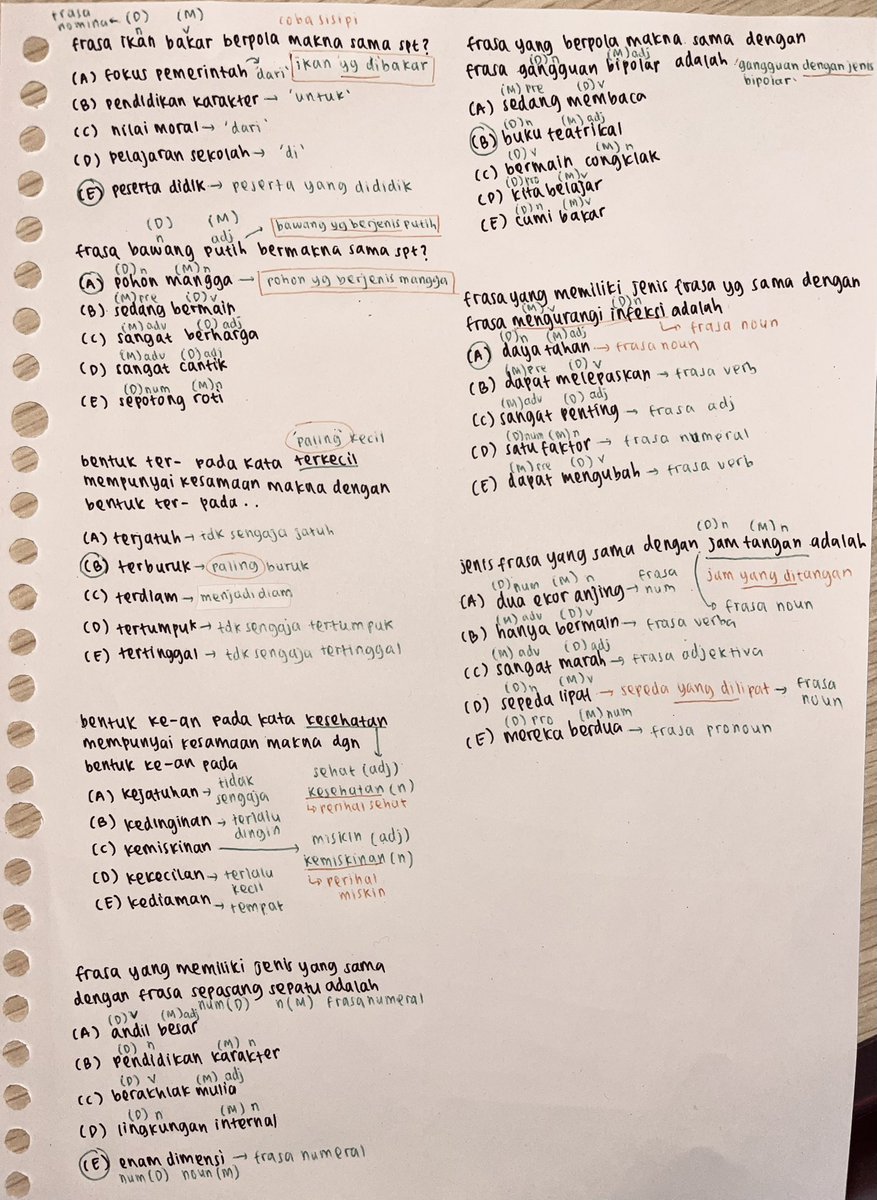 frasa nomina ← (D) (M) coba sisipi
n v
frasa ikan bakar berpola makna sama spt?
(A) fokus pemerintah 'dari' ikan yg dibakar
(B) pendidikan karakter → 'untuk'
(C) nilai moral → 'dari'
(D) pelajaran sekolah → 'di'
(E) peserta didik → peserta yang dididik
(D) (M)
n adj → bawang yg berjenis putih
frasa bawang putih bermakna sama spt?
(D)n (M)n
(A) pohon mangga → pohon yg berjenis mangga
(M)pre (D)v
(B) sedang bermain
(M)adv (D)adj
(C) sangat berharga
(M)adv (D)adj
(D) sangat cantik
(D)num (M)n
(E) sepotong roti
'paling' kecil
bentuk ter- pada kata terkecil
mempunyai kesamaan makna dengan
bentuk ter- pada..
(A) terjatuh → tdk sengaja jatuh
(B) terburuk → paling buruk
(C) terdiam → menjadi diam
(D) tertumpuk → tdk sengaja tertumpuk
(E) tertinggal → tdk sengaja tertinggal
bentuk ke-an pada kata kesehatan
mempunyai kesamaan makna dgn
bentuk ke-an pada
sehat (adj)
kesehatan (n)
↳ perihal sehat
(A) kejatuhan → tidak sengaja
(B) kedinginan → terlalu dingin
(C) kemiskinan → miskin (adj)
kemiskinan (n)
↳ perihal miskin
(D) kekecilan → terlalu kecil
(E) kediaman → tempat
frasa yang memiliki jenis yang sama
dengan frasa sepasang sepatu adalah
num(D) n(M) frasa numeral
(D)v (M)adj
(A) andil besar
(D) n (M) n
(B) pendidikan karakter
(D) v (M) adj
(C) berakhlak mulia
(D) n (M) n
(D) lingkungan internal
(E) enam dimensi → frasa numeral
num(D) noun(M)
frasa yang berpola makna sama dengan
(D)n (M)adj
frasa gangguan bipolar adalah 'gangguan dengan jenis bipolar'
(M)pre (D)v
(A) sedang membaca
(D)n (M)adj
(B) buku teatrikal
(D)v (M)n
(C) bermain congklak
(D)pro (M)v
(D) kita belajar
(D)n (M)v
(E) cumi bakar
frasa yang memiliki jenis frasa yg sama dengan
(M)v (D)n
frasa mengurangi infeksi adalah
↳ frasa noun
(D)n (M)adj
(A) daya tahan → frasa noun
(M)pre (D)v
(B) dapat melepaskan → frasa verb
(M)adv (D)adj
(C) sangat penting → frasa adj
(D)num (M)n
(D) satu faktor → frasa numeral
(M)pre (D)v
(E) dapat mengubah → frasa verb
(D)n (M)n
jenis frasa yang sama dengan jam tangan adalah
jam yang ditangan
→ frasa noun
(D)num (M)n
(A) dua ekor anjing → frasa num
(M)adv (D)v
(B) hanya bermain → frasa verba
(M)adv (D)adj
(C) sangat marah → frasa adjektiva
(D)n (M)v
(D) sepeda lipat → sepeda yang dilipat → frasa noun
(D)pro (M)num
(E) mereka berdua → frasa pronoun